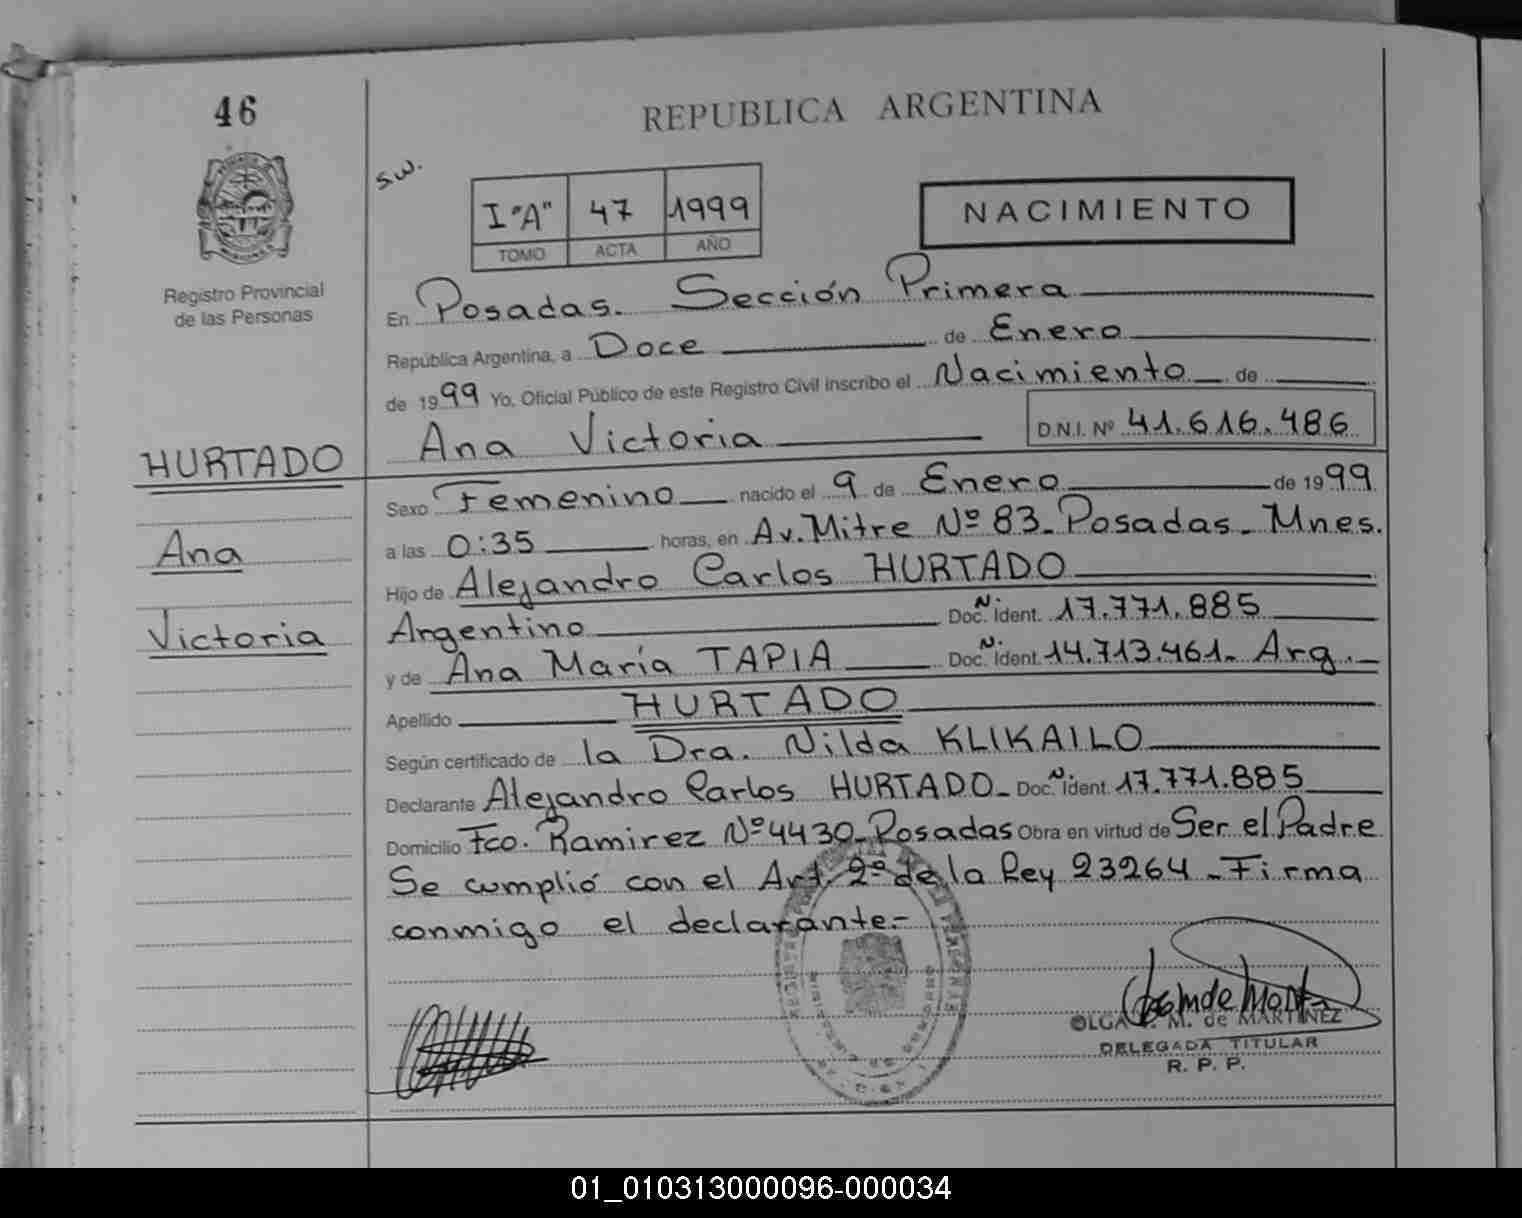 46
REPUBLICA ARGENTINA
s.w.
I "A" 47 1999
TOMO ACTA AÑO
NACIMIENTO
Registro Provincial
de las Personas
En Posadas. Sección Primera
República Argentina, a Doce de Enero
de 1999 Yo, Oficial Público de este Registro Civil inscribo el Nacimiento de
Ana Victoria D.N.I. Nº 41.616.486
HURTADO
Ana
Victoria
Sexo Femenino nacido el 9 de Enero de 1999
a las 0:35 horas, en Av. Mitre Nº 83_ Posadas_ Mnes.
Hijo de Alejandro Carlos HURTADO
Argentino Doc. N. Ident. 17.771.885
y de Ana María TAPIA Doc. N. Ident. 14.713.461_ Arg.
Apellido HURTADO
Según certificado de la Dra. Nilda KLIKAILO
Declarante Alejandro Carlos HURTADO_ Doc. N. Ident. 17.771.885
Domicilio Fco. Ramirez Nº 4430_ Posadas Obra en virtud de Ser el Padre
Se cumplió con el Art. 2º de la Ley 23264_ Firma
conmigo el declarante.-
OLGA M. de MARTINEZ
DELEGADA TITULAR
R. P. P.
01_010313000096-000034